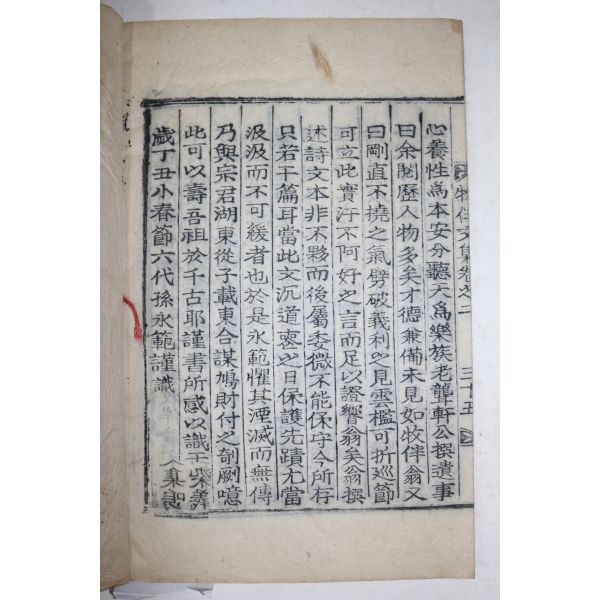 牧伴文集卷之二
三十五
心養性爲本安分聽天爲樂族老聾軒公撰遺事
曰余閱歷人物多矣才德兼備未見如牧伴翁又
曰剛直不撓之氣劈破義利之見雲檻可折廵節
可立此實汙不阿好之言而足以證嚮翁矣翁撰
述詩文本非不夥而後屬委微不能保守今所存
只若干篇耳當此文沉道喪之日保護先蹟尤當
汲汲而不可緩者也於是永範懼其湮滅而無傳
乃與宗君湖東從子載東合謀鳩財付之剞劂噫
此可以壽吾祖於千古耶謹書所感以識于
歲丁丑小春節六代孫永範謹識